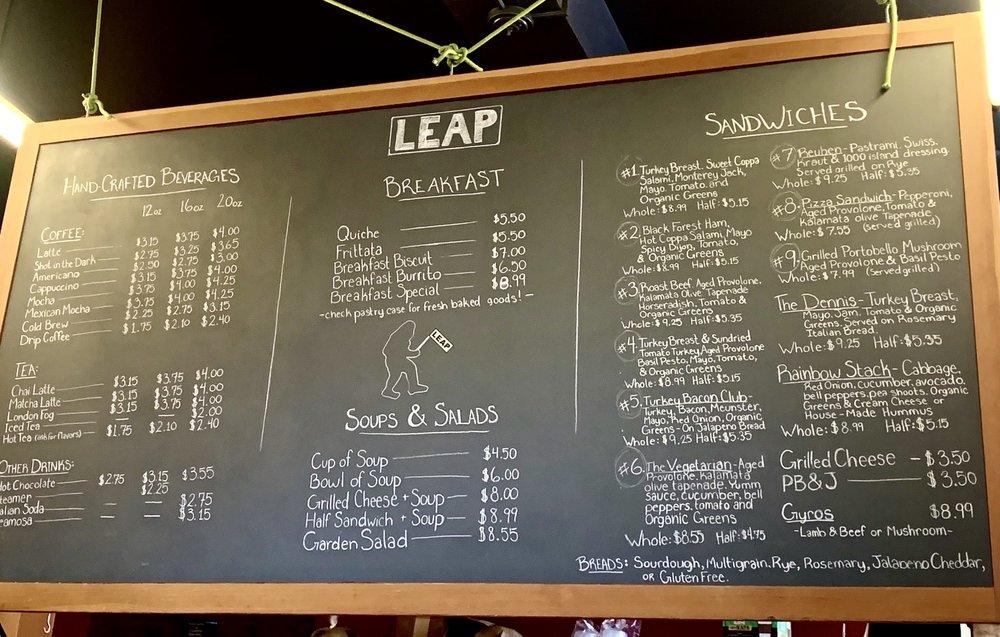 LEAP
HAND-CRAFTED BEVERAGES
12oz 16oz 20oz
COFFEE:
Latte $3.15 $3.75 $4.00
Shot in the Dark $2.75 $3.25 $3.65
Americano $2.50 $2.75 $3.00
Cappuccino $3.15 $3.75 $4.00
Mocha $3.75 $4.00 $4.25
Mexican Mocha $3.75 $4.00 $4.25
Cold Brew $2.25 $2.75 $3.15
Drip Coffee $1.75 $2.10 $2.40
TEA:
Chai Latte $3.15 $3.75 $4.00
Matcha Latte $3.15 $3.75 $4.00
London Fog $3.15 $3.75 $4.00
Iced Tea $2.00
Hot Tea (ask for flavors) $1.75 $2.10 $2.40
OTHER DRINKS:
Hot Chocolate $2.75 $3.15 $3.55
teamer $2.25
talian Soda — — $2.75
eamosa — — $3.15
BREAKFAST
Quiche $5.50
Frittata $5.50
Breakfast Biscuit $7.00
Breakfast Burrito $6.50
Breakfast Special $8.99
-check pastry case for fresh baked goods!-
LEAP
SOUPS & SALADS
Cup of Soup $4.50
Bowl of Soup $6.00
Grilled Cheese + Soup $8.00
Half Sandwich + Soup $8.99
Garden Salad $8.55
SANDWICHES
#1 Turkey Breast, Sweet Coppa
Salami, Monterey Jack,
Mayo, Tomato, and
Organic Greens
Whole: $8.99 Half: $5.15
#2 Black Forest Ham,
Hot Coppa Salami, Mayo
Spicy Dijon, Tomato,
& Organic Greens
Whole: $8.99 Half: $5.15
#3 Roast Beef, Aged Provolone,
Kalamata Olive Tapenade
Horseradish, Tomato &
Organic Greens
Whole: $9.25 Half: $5.35
#4 Turkey Breast & Sundried
Tomato Turkey, Aged Provolone
Basil Pesto, Mayo, Tomato,
& Organic Greens
Whole: $8.99 Half: $5.15
#5 Turkey Bacon Club-
Turkey, Bacon, Meunster,
Mayo, Red Onion, Organic
Greens - On Jalapeno Bread
Whole: $9.25 Half: $5.35
#6 The Vegetarian-Aged
Provolone, Kalamata
olive tapenade, Yumm
sauce, cucumber, bell
peppers, tomato and
Organic Greens
Whole: $8.55 Half: $4.75
#7 Reuben- Pastrami, Swiss,
Kraut & 1000 island dressing.
Served grilled on Rye
Whole: $9.25 Half: $5.35
#8 Pizza Sandwich- Pepperoni,
Aged Provolone, Tomato &
Kalamata olive Tapenade
Whole: $7.55 (served grilled)
#9 Grilled Portobello Mushroom
Aged Provolone & Basil Pesto
Whole: $7.99 (served grilled)
The Dennis- Turkey Breast,
Mayo, Jam, Tomato & Organic
Greens. Served on Rosemary
Italian Bread.
Whole: $9.25 Half: $5.35
Rainbow Stack- Cabbage,
Red Onion, cucumber, avocado,
bell peppers, pea shoots, Organic
Greens & Cream Cheese or
House-Made Hummus
Whole: $8.99 Half: $5.15
Grilled Cheese - $3.50
PB&J $3.50
Gyros $8.99
-Lamb & Beef or Mushroom-
BREADS: Sourdough, Multigrain, Rye, Rosemary, Jalapeno Cheddar,
OR Gluten Free.